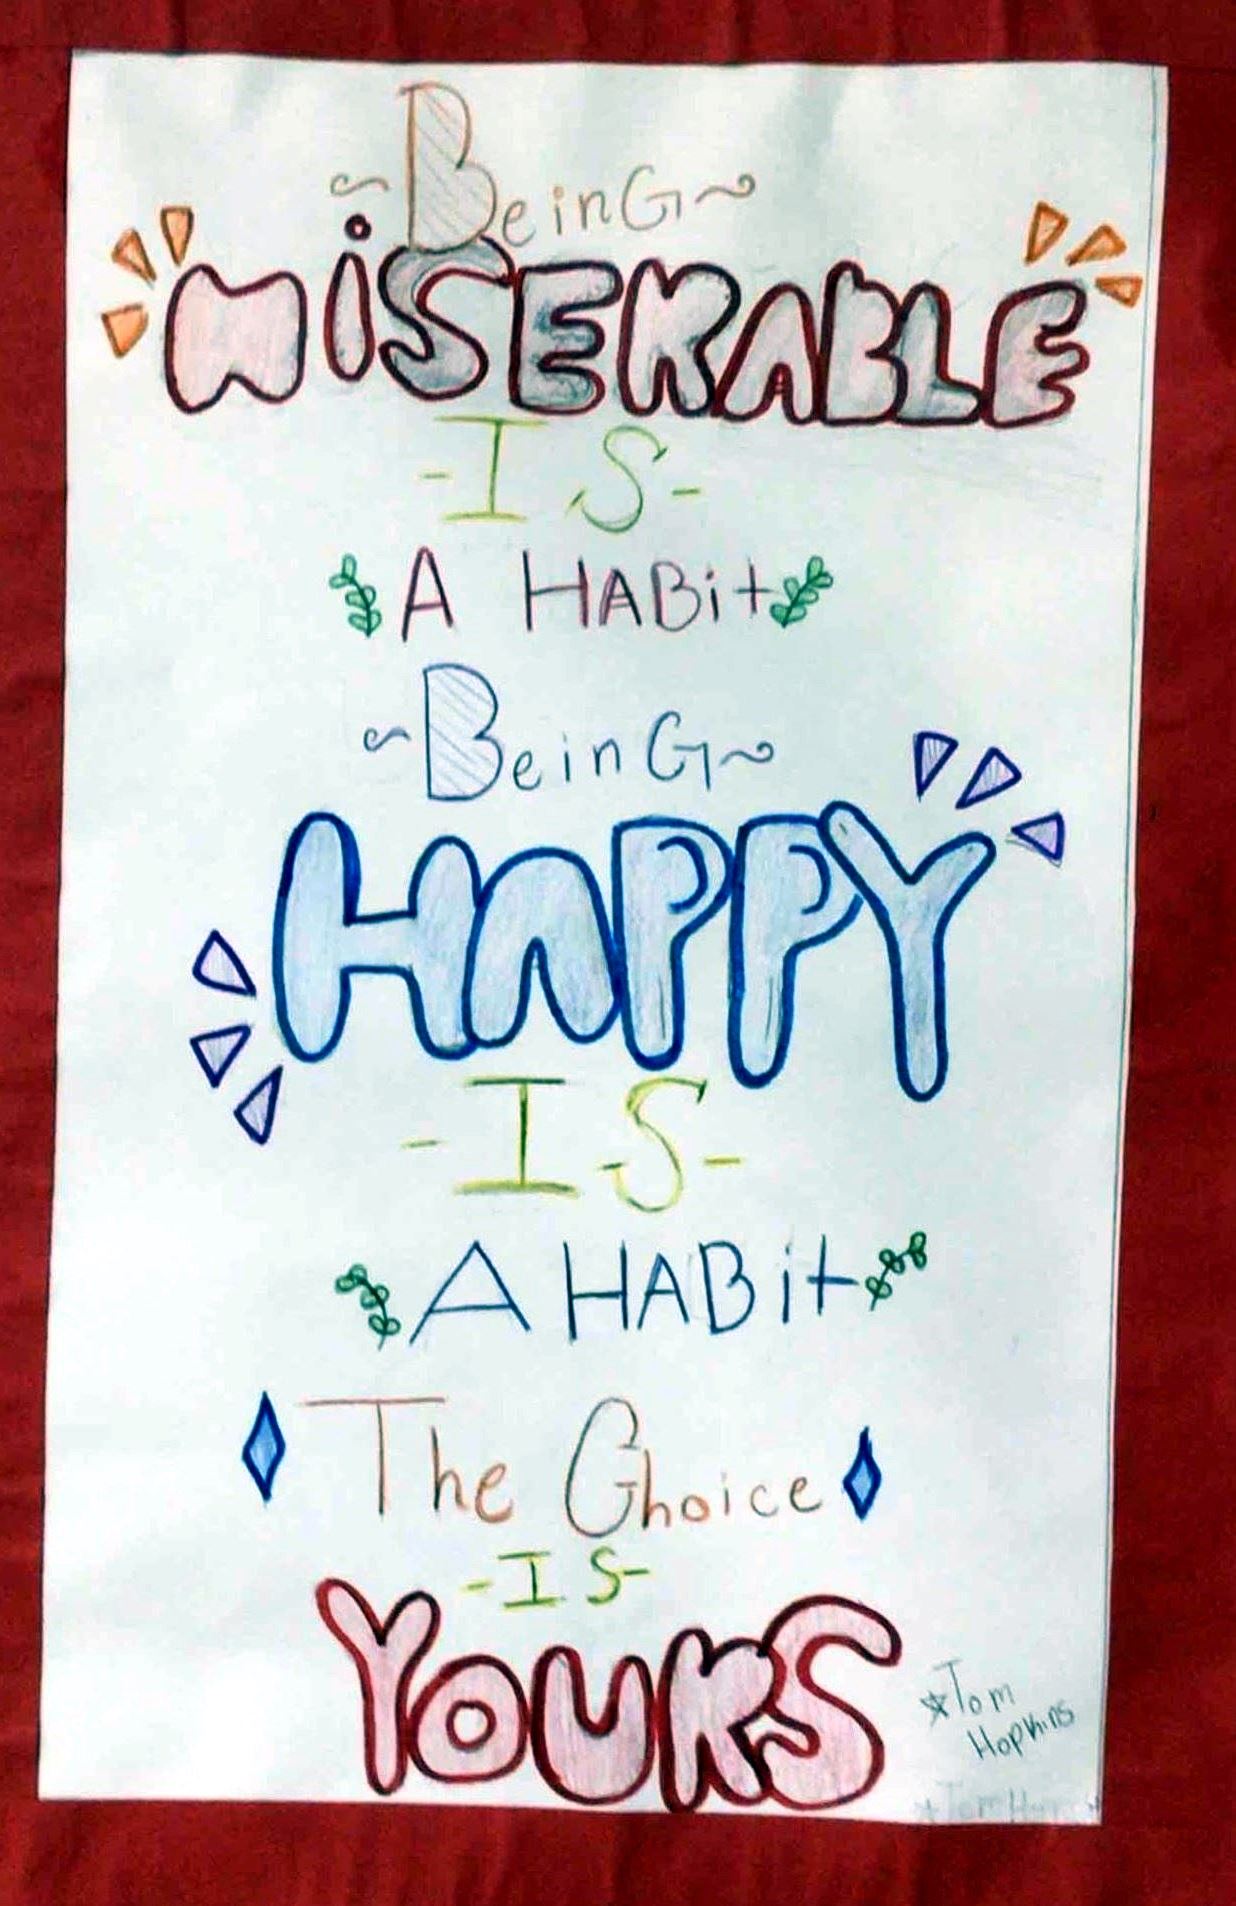 ~BeinG~
MiSERABLE
-IS-
A HABit
~BeinG~
HAPPY
-IS-
A HABit
The Choice
-IS-
YOURS
Tom
Hopkins